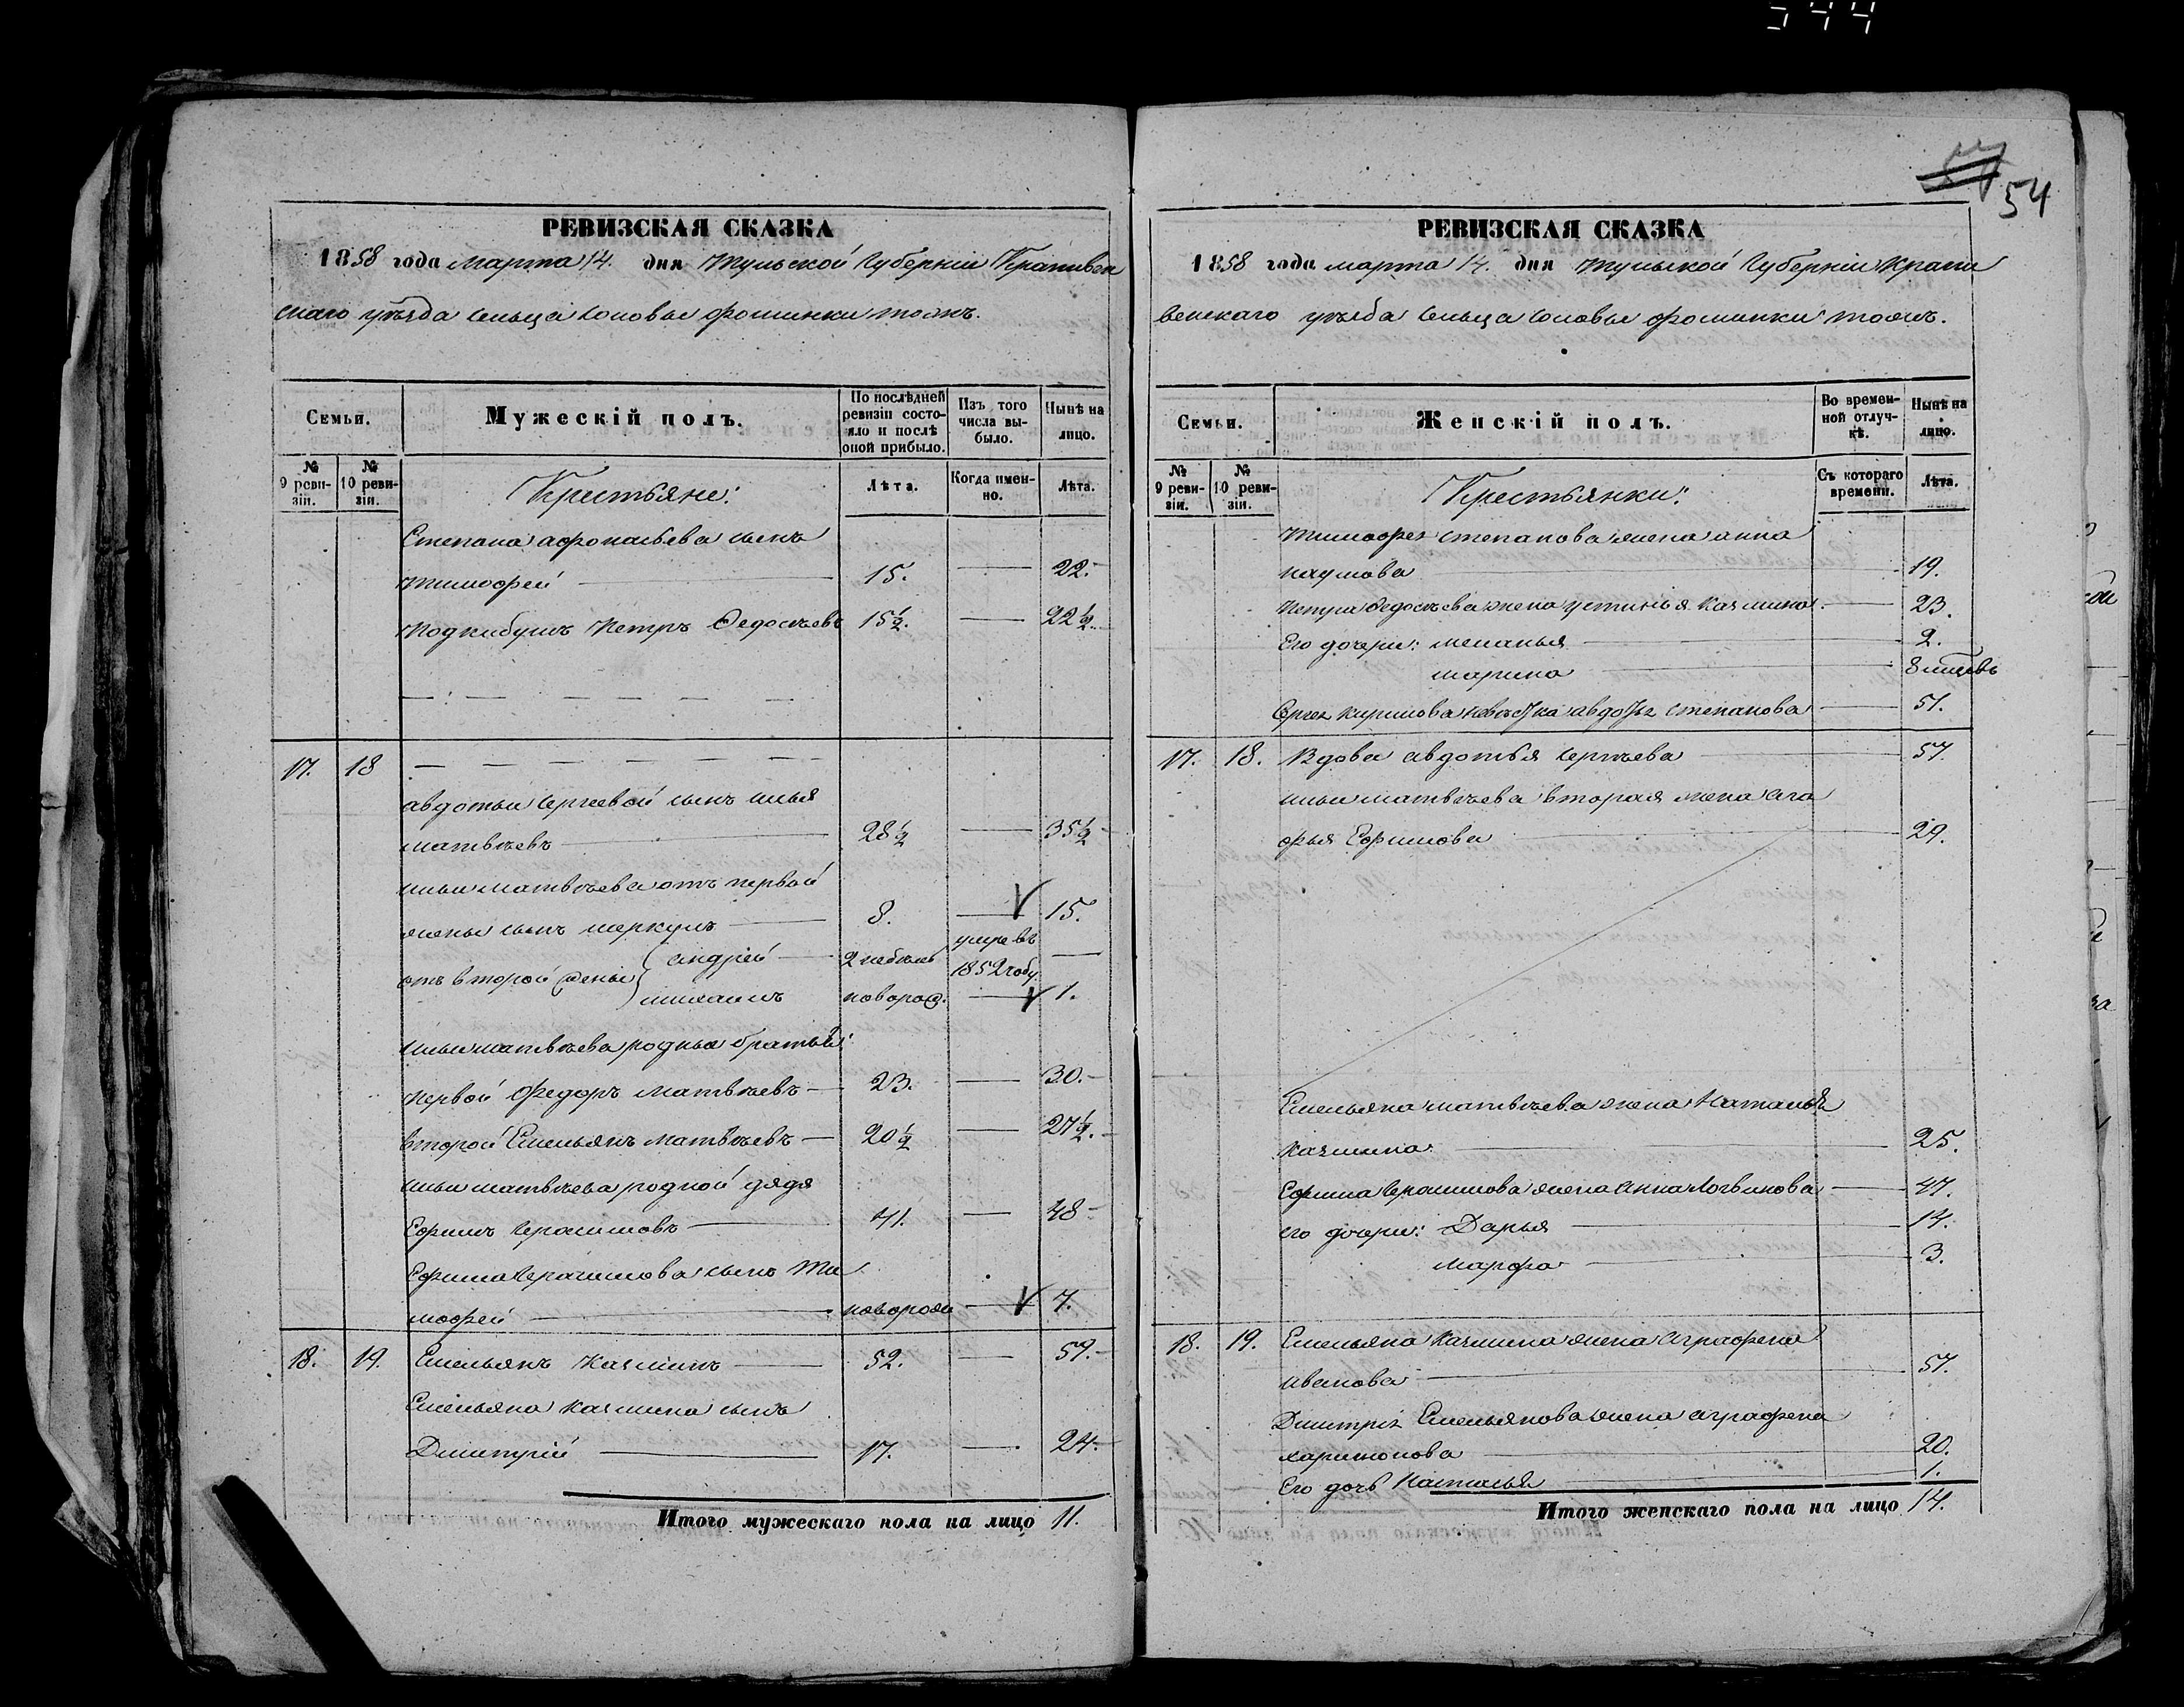 54
РЕВИЗСКАЯ СКАЗКА
1858 года марта 14. дня Тульской Губернии Крапивен
скаго уѣзда сельца соповы фоминки тожъ.
Семьи.
Мужескій полъ.
По послѣдней ревизіи состояло и послѣ оной прибыло.
Изъ того числа выбыло.
Нынѣ на лицо.
№ 9 ревизіи.
№ 10 ревизіи.
Крестьяне:
Лѣта.
Когда именно.
Лѣта.
Степана афонасьева сынъ
тимофей 15. 22.
Подкибушъ Петръ Федосѣевъ 15½. 22½.
17. 18
авдотьи Сергеевой сынъ илья
матвѣевъ 28½ 35½
ильи матвѣева отъ первой
жены сынъ меркулъ 8. 15.
отъ второй жены андрей 2 недѣль умре въ 1852 году
михаилъ новорож. 1.
ильи матвѣева родные братья:
первой Федоръ матвѣевъ 23. 30.
второй Емельянъ матвѣевъ 20½ 27½.
ильи матвѣева родной дядя
Ефимъ Герасимовъ 41. 48
Ефима Герасимова сынъ Ти
мофей новорож 7.
18. 19. Емельянъ Казминъ 52. 59.
Емельяна казмина сынъ
Дмитрій 17. 24.
Итого мужескаго пола на лицо 11.
РЕВИЗСКАЯ СКАЗКА
1858 года марта 14. дня Тульской Губернии Крапи
венскаго уѣзда сельца соповы фоминки тожъ.
Семьи.
Женскій полъ.
Во временной отлучкѣ.
Нынѣ на лицо.
№ 9 ревизіи.
№ 10 ревизіи.
Крестьянки:
Съ котораго времени.
Лѣта.
Тимофея степанова жена анна
наумова 19.
Петра Федосѣева жена устинья Казмина 23.
Его дочери: меланья 2.
марина 8 мцевъ
Сергея киримова невѣстка авдотья степанова 51.
17. 18. Вдова авдотья сергѣева 57.
ильи матвѣева вторая жена ага
фья Ефимова 29.
Емельяна матвѣева жена Наталья
казмина 25.
Ефима Герасимова жена анна Логвинова 47.
его дочери: Дарья 14.
марфа 3.
18. 19. Емельяна Казмина жена аграфена
иванова 57.
Дмитрія Емельянова жена аграфена
харитонова 20.
Его дочь Наталья 1.
Итого женскаго пола на лицо 14.